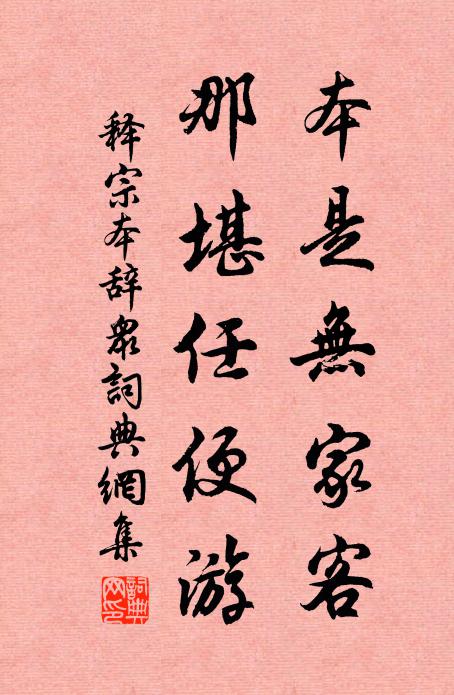 本是無家客
那堪任便游
释宗本辞衆詞典網集
詞典网印